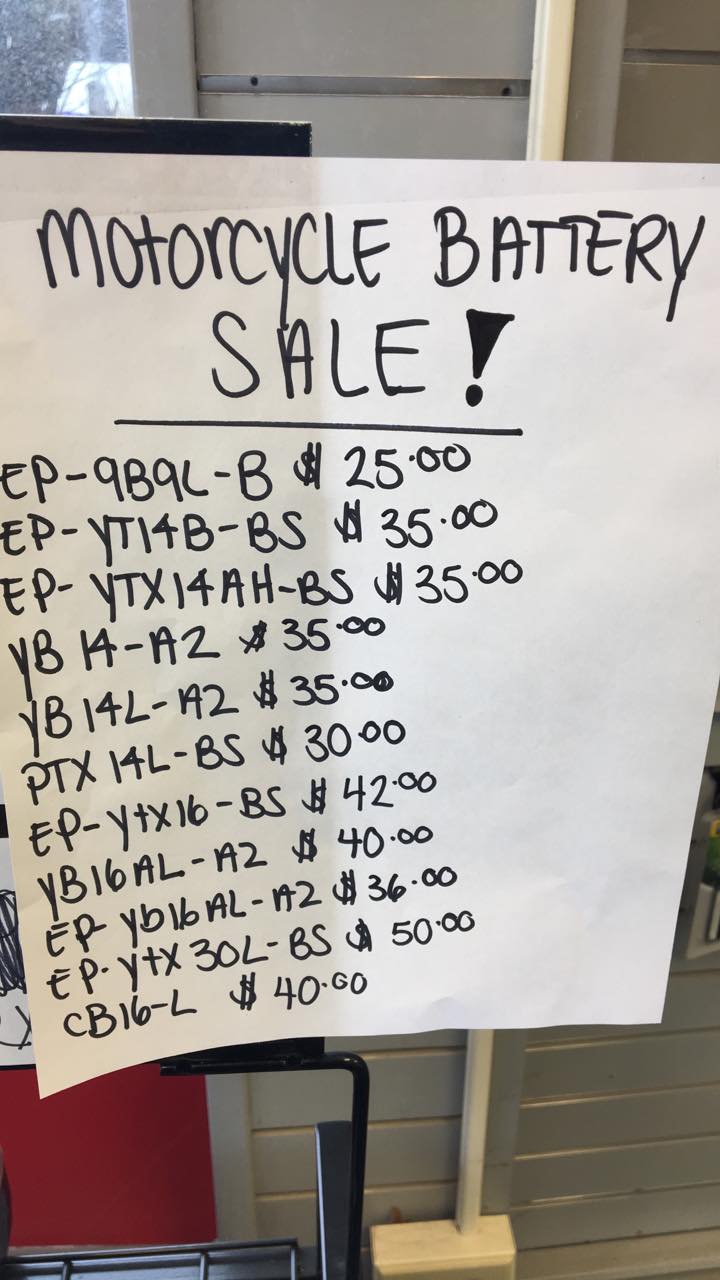 MOtorCYCLE BATTERY
SALE!
EP-9B9L-B $ 25.00
EP-YT14B-BS $ 35.00
EP-YTX14AH-BS $ 35.00
YB 14-A2 $ 35.00
YB 14L-A2 $ 35.00
PTX 14L-BS $ 30.00
EP-Ytx16-BS $ 42.00
YB16AL-A2 $ 40.00
EP-Yb16AL-A2 $ 36.00
EP-Ytx 30L-BS $ 50.00
CB16-L $ 40.00